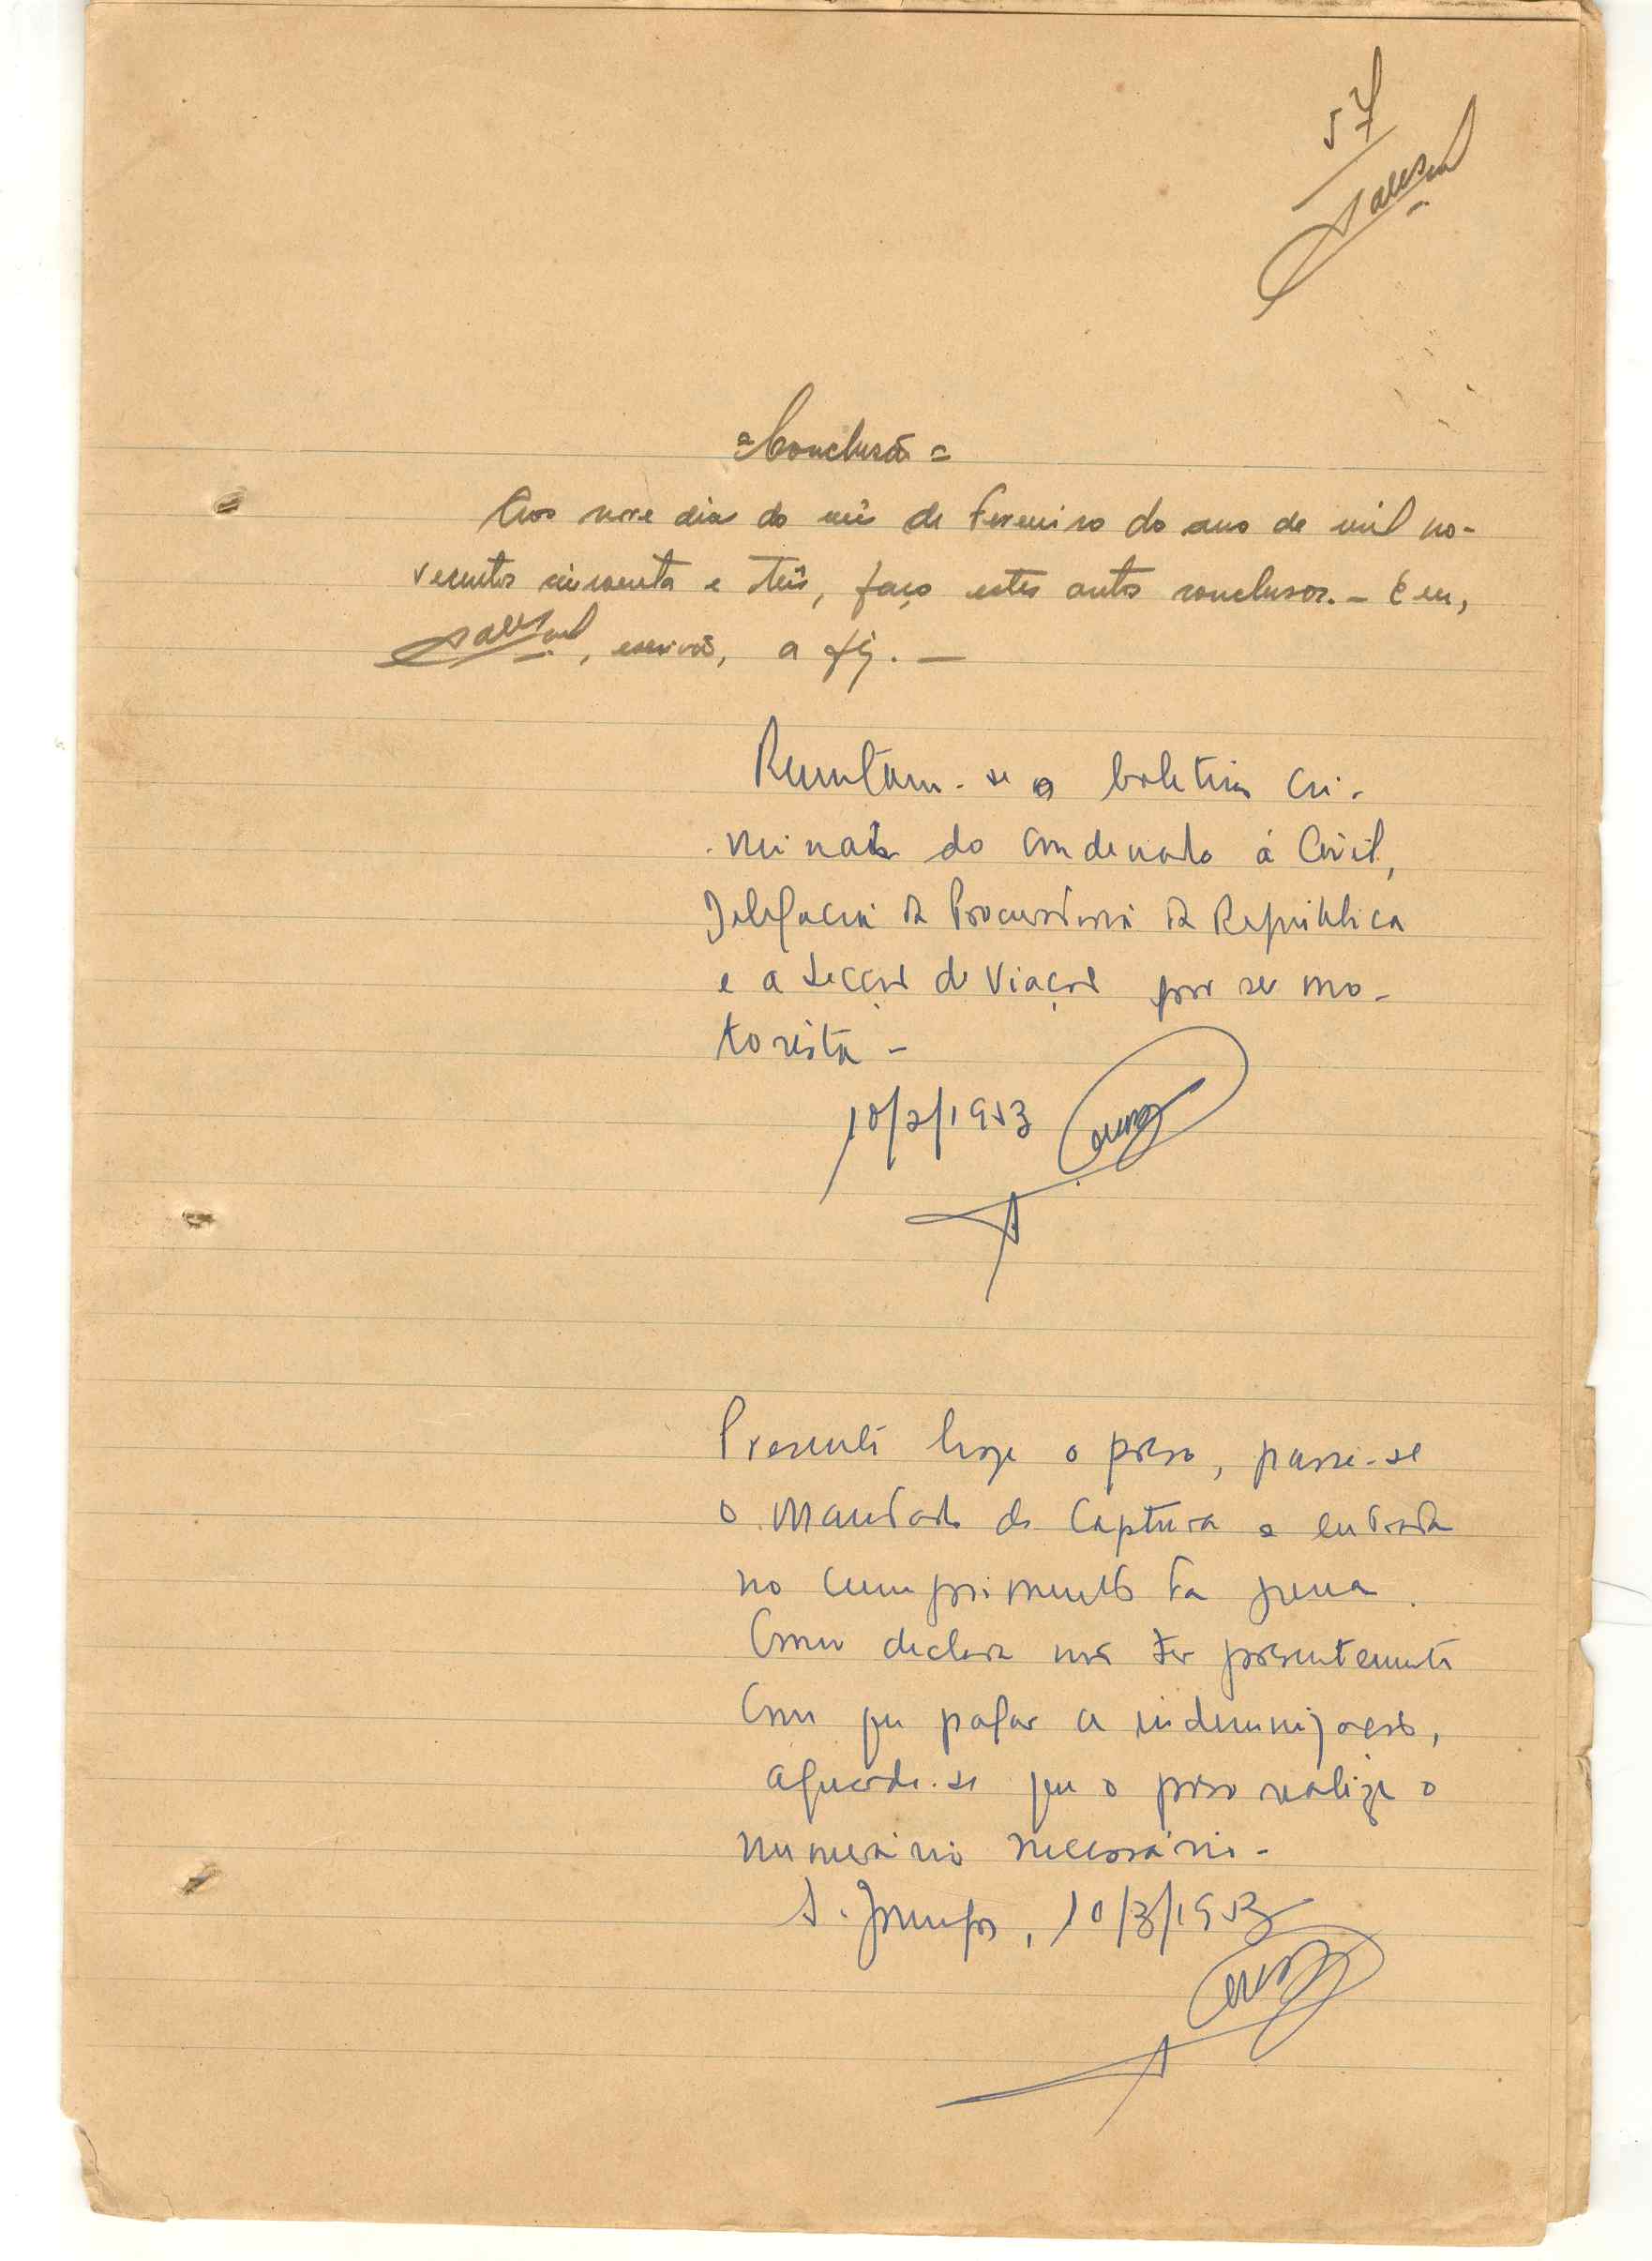 57
= Conclusão =
Aos nove dia do mês de Fevereiro do ano de mil no-
vecentos cincoenta e três, faço estes autos conclusos. - E eu,
, escrivão, a fiz. —
Remetam-se o boletim cri-
minal do condenado á Civil,
Delegacia da Procuradoria da República
e a Secção de Viação por ser mo-
torista -
10/2/1953
Presente hoje o preso, passe-se
o mandado de captura e entrada
no cumprimento da pena.
Como declara não ter presentemente
com que pagar a indemnização,
aguarde-se que o preso realize o
numerário necessário -
10/3/1953